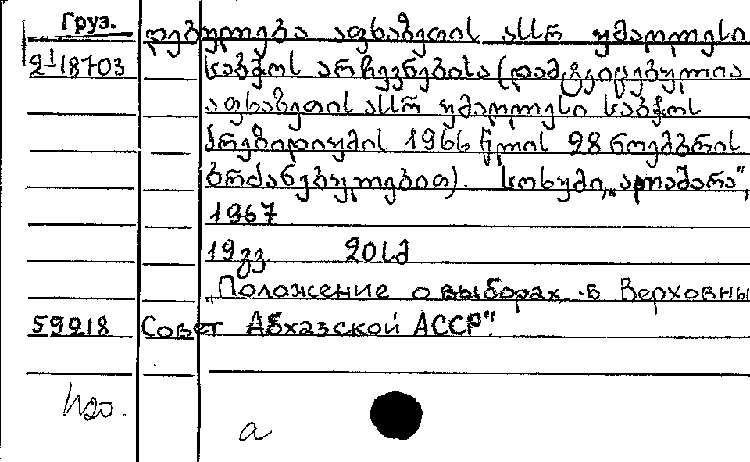 Груз.
დებულება აფხაზეთის ასსრ უმაღლესი
2-18703 საბჭოს არჩევნებისა (დამტკიცებულია
აფხაზეთის ასსრ უმაღლესი საბჭოს
პრეზიდიუმის 1966 წლის 28 ნოემბრის
ბრძანებულებით). სოხუმი, „ალაშარა",
1967
19 გვ. 20სმ
„Положение о выборах в Верховны
59218 Совет Абхазской АССР"
а